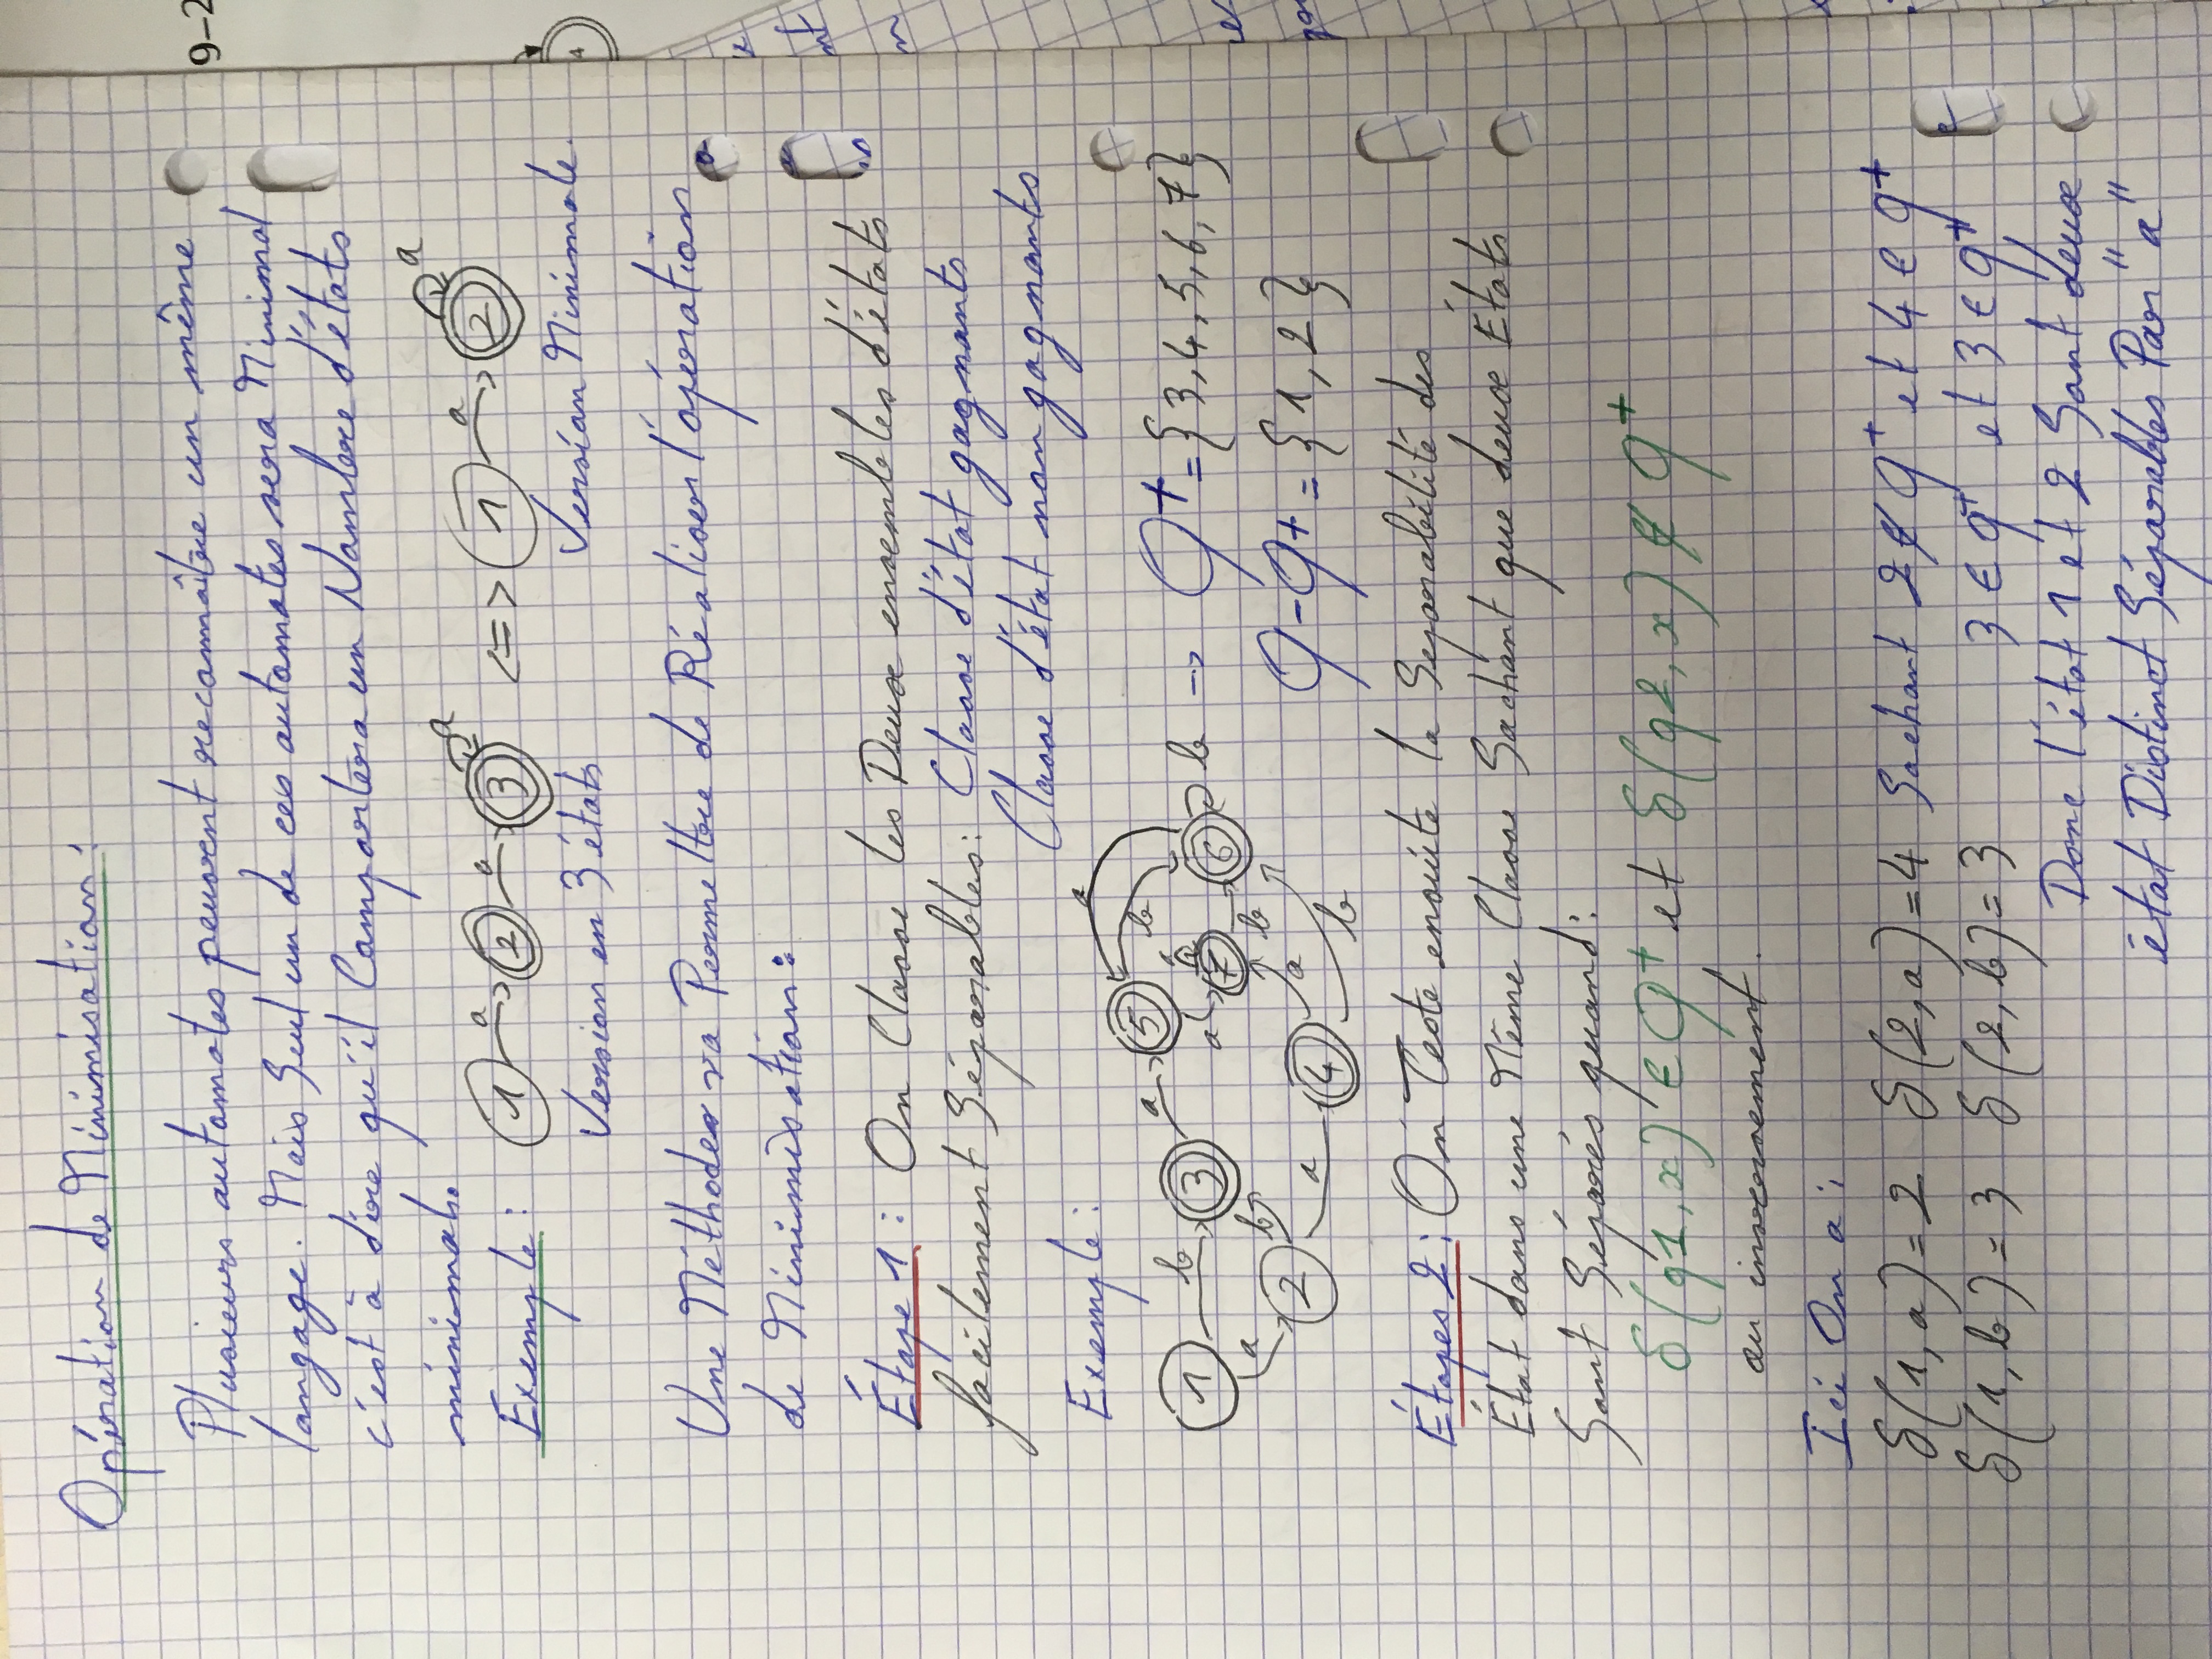 Opération de Minimisation :
Plusieurs automates peuvent reconnaître un même
langage. Mais Seul un de ces automates sera Minimal
c'est à dire qu'il Comportera un Nombre d'états
minimal.
Exemple : 1 a 2 a 3 a <=> 1 a 2 a
Version en 3 états Version Minimale.
Une Méthode va Permettre de Réaliser l'opération
de Minimisation :
Étape 1 : On Classe les Deux ensembles d'états
facilement Séparables : Classe d'état gagnants
Classe d'état non gagnants
Exemple :
1 b 3 a 5 a b a 7 a b 6 b -> Q+ = {3, 4, 5, 6, 7}
a 2 b a 4 a b Q-Q+ = {1, 2}
Étapes 2 : On Teste ensuite la Separabilité des
État dans une Même Classe Sachant que deux États
Sont Séparés quand :
δ(q1, x) ∈ Q+ et δ(q2, x) ∉ Q+
ou inversement.
Ici On a :
δ(1, a) = 2 δ(2, a) = 4 Sachant 2 ∉ Q+ et 4 ∈ Q+
δ(1, b) = 3 δ(2, b) = 3 3 ∈ Q+ et 3 ∈ Q+
Donc l'état 1 et 2 Sont deux
état Distinct Séparables Par "a"
9-2
4